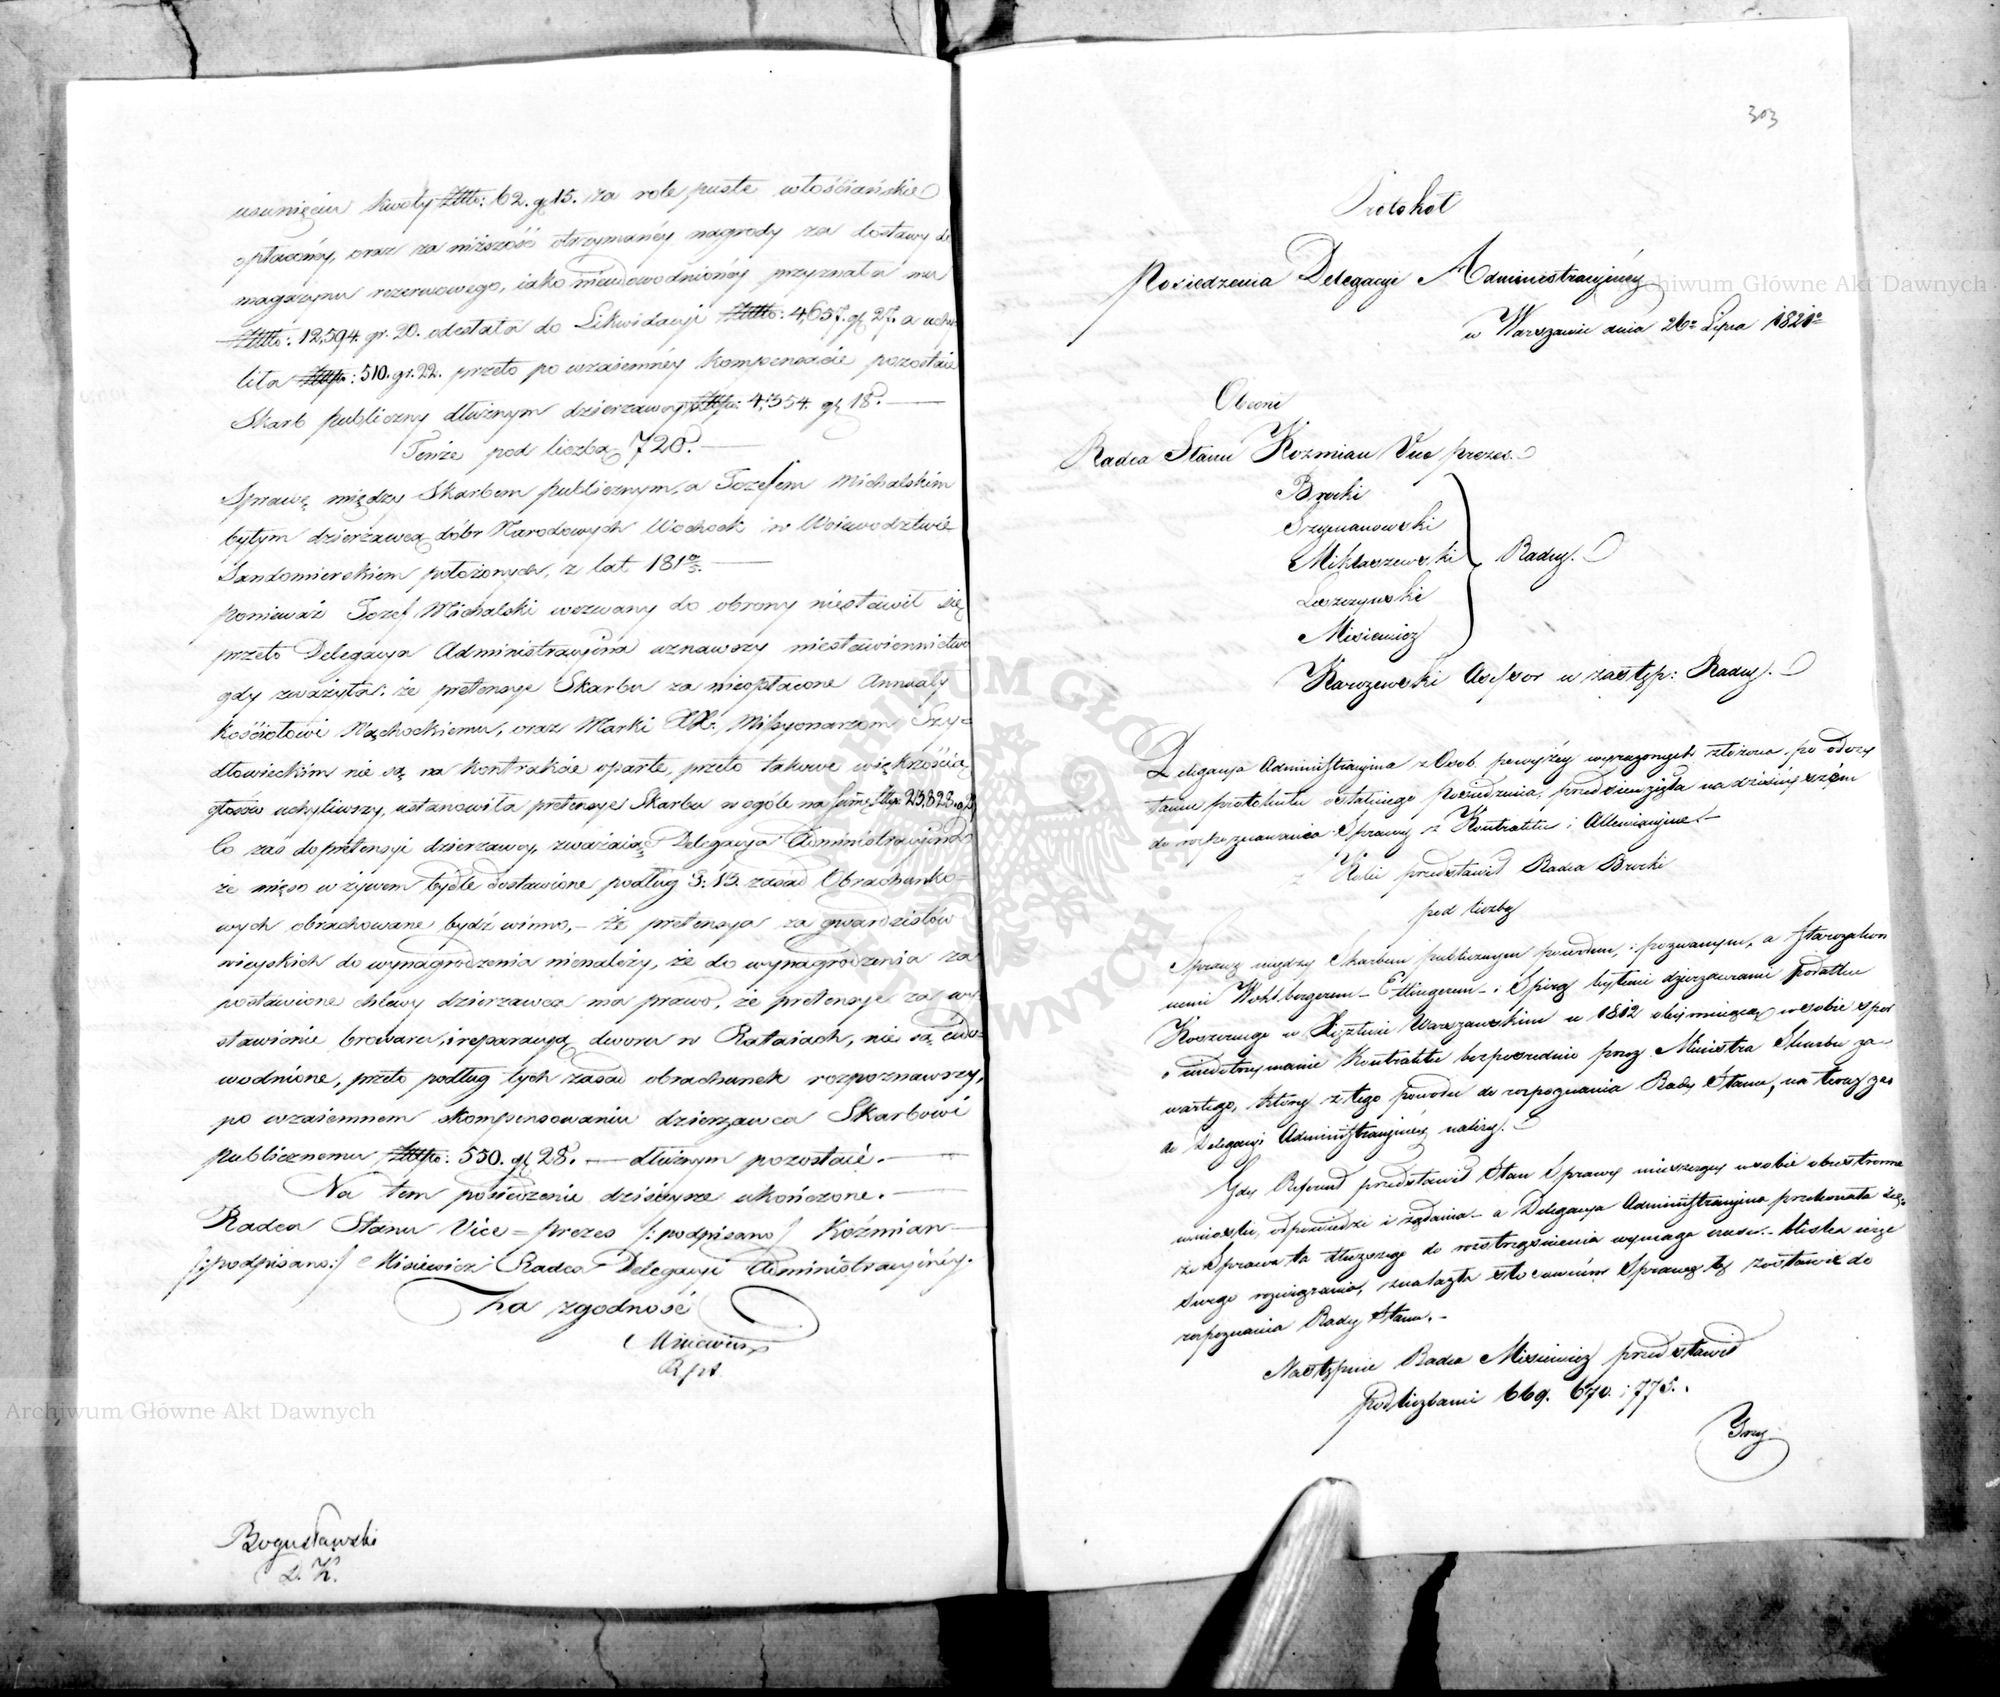 usunięciu kwoty Złtto: 62. gr 15. za role puste włościańskie
opłaconéy, oraz za niższość otrzymanéy nagrody za dostawy do
magazynu rezerwowego, iako nieudowodnionéy przyznała mu
Złtto: 12,594. gr. 20. odesłała do Likwidacyi Złtto: 4,657. gr 27. a uchy-
liła Złtto: 510. gr. 22. przeto po wzaiemnéy kompensacie pozostaie
Skarb publiczny dłużnym dzierzawcy Złtto: 4,354. gr 18. —
Tenże pod liczbą 720. —
Sprawę między Skarbem publicznym, a Jozefem Michalskim
byłym dzierżawcą dóbr Narodowych Wochock w Woiewodztwie
Sandomierskiem położonych, z lat 181 —
ponieważ Jozef Michalski wezwany do obrony niestawił się
przeto Delegacya Administracyina uznawszy niestawiennictwo
gdy zważyła: że pretensye Skarbu za nieopłacone Annuaty
kościołowi Wąchockiemu, oraz Marki XX. Missyonarzom Szy-
dłowieckim nie są na kontrakcie oparte, przeto takowe większością
głosów uchyliwszy, ustanowiła pretensye Skarbu w ogóle na summę Złtp. 23,828.
Co zaś do pretensyi dzierzawcy, zważaiąc Delegacya Administracyina
że mięso w żywem bydle dostawione podług §: 13. zasad Obrachunko-
wych obrachowane bydź winno, – że pretensya za gwardzistów
wieyskich do wynagrodzenia nienależy, że do wynagrodzenia za
postawione chlewy dzierzawca ma prawo, że pretensye za wy-
stawienie browaru, i reparacyą dworu w Rataiach, nie są udo-
wodnione, przeto podług tych zasad obrachunek rozpoznawszy,
po wzaiemnem skompensowaniu dzierzawca Skarbowi
Publicznemu Złtto: 550. gr 28. — dłużnym pozostaié. —
Na tem posiedzenie dzisieysze ukończone. —
Radca Stanu Vice = prezes /: podpisano / Koźmian —
/:podpisano:/ Misiewicz Radca Delegacyi Administracyinéy.
Za zgodność
Misiewicz
R. pt
Bogusławski
D. K.
303
Protokół
Posiedzenia Delegacyi Administracyinéy
w Warszawie dnia 26 Lipca 1821
Obecni
Radca Stanu Kozmian Vice prezes.
Brocki
Szymanowski
Mikłaszewski Radcy.
Leszczynski
Misiewicz
Karczewski Assessor w zastęp: Radcy.
Delegacya Administracyina z Osób powyżéy wyrażonych złożona, po odczy-
taniu protokułu ostatniego posiedzenia, przedsiewzięła na dzisieyszém
do rozpoznawania Sprawy z Kontraktu i Allewiacyine. –
z Kolei przedstawił Radca Brocki
pod liczbą
Sprawę między Skarbem publicznym powodem, i pozwanym, a Starozakon
nemi Wohlbergerem – Ettingerem – i Spirą byłemi dzierzawcami podatku
Koszernego w Xięztwie Warszawskim w 1812 obeymuiącą w sobie spór
o niedotrzymanie Kontraktu bezpośrednio przez Ministra Skarbu za-
wartego, który z tego powodu do rozpoznania Rady Stanu, na teraz zaś
do Delegacyi Administracyinéy należy.
Gdy Referent przedstawił Stan Sprawy mieszczący w sobie obustronne
wnioski, odpowiedzi i żądania – a Delegacya Administracyina przekonała się
że Sprawa ta dłuższego do rozstrzygnienia wymaga czasu –
swego rozwiązania, znalazła stosownem Sprawę tę zostawić do
rozpoznania Rady Stanu. –
Następnie Radca Misiewicz przedstawił
Pod liczbami 669. 670. i 775.